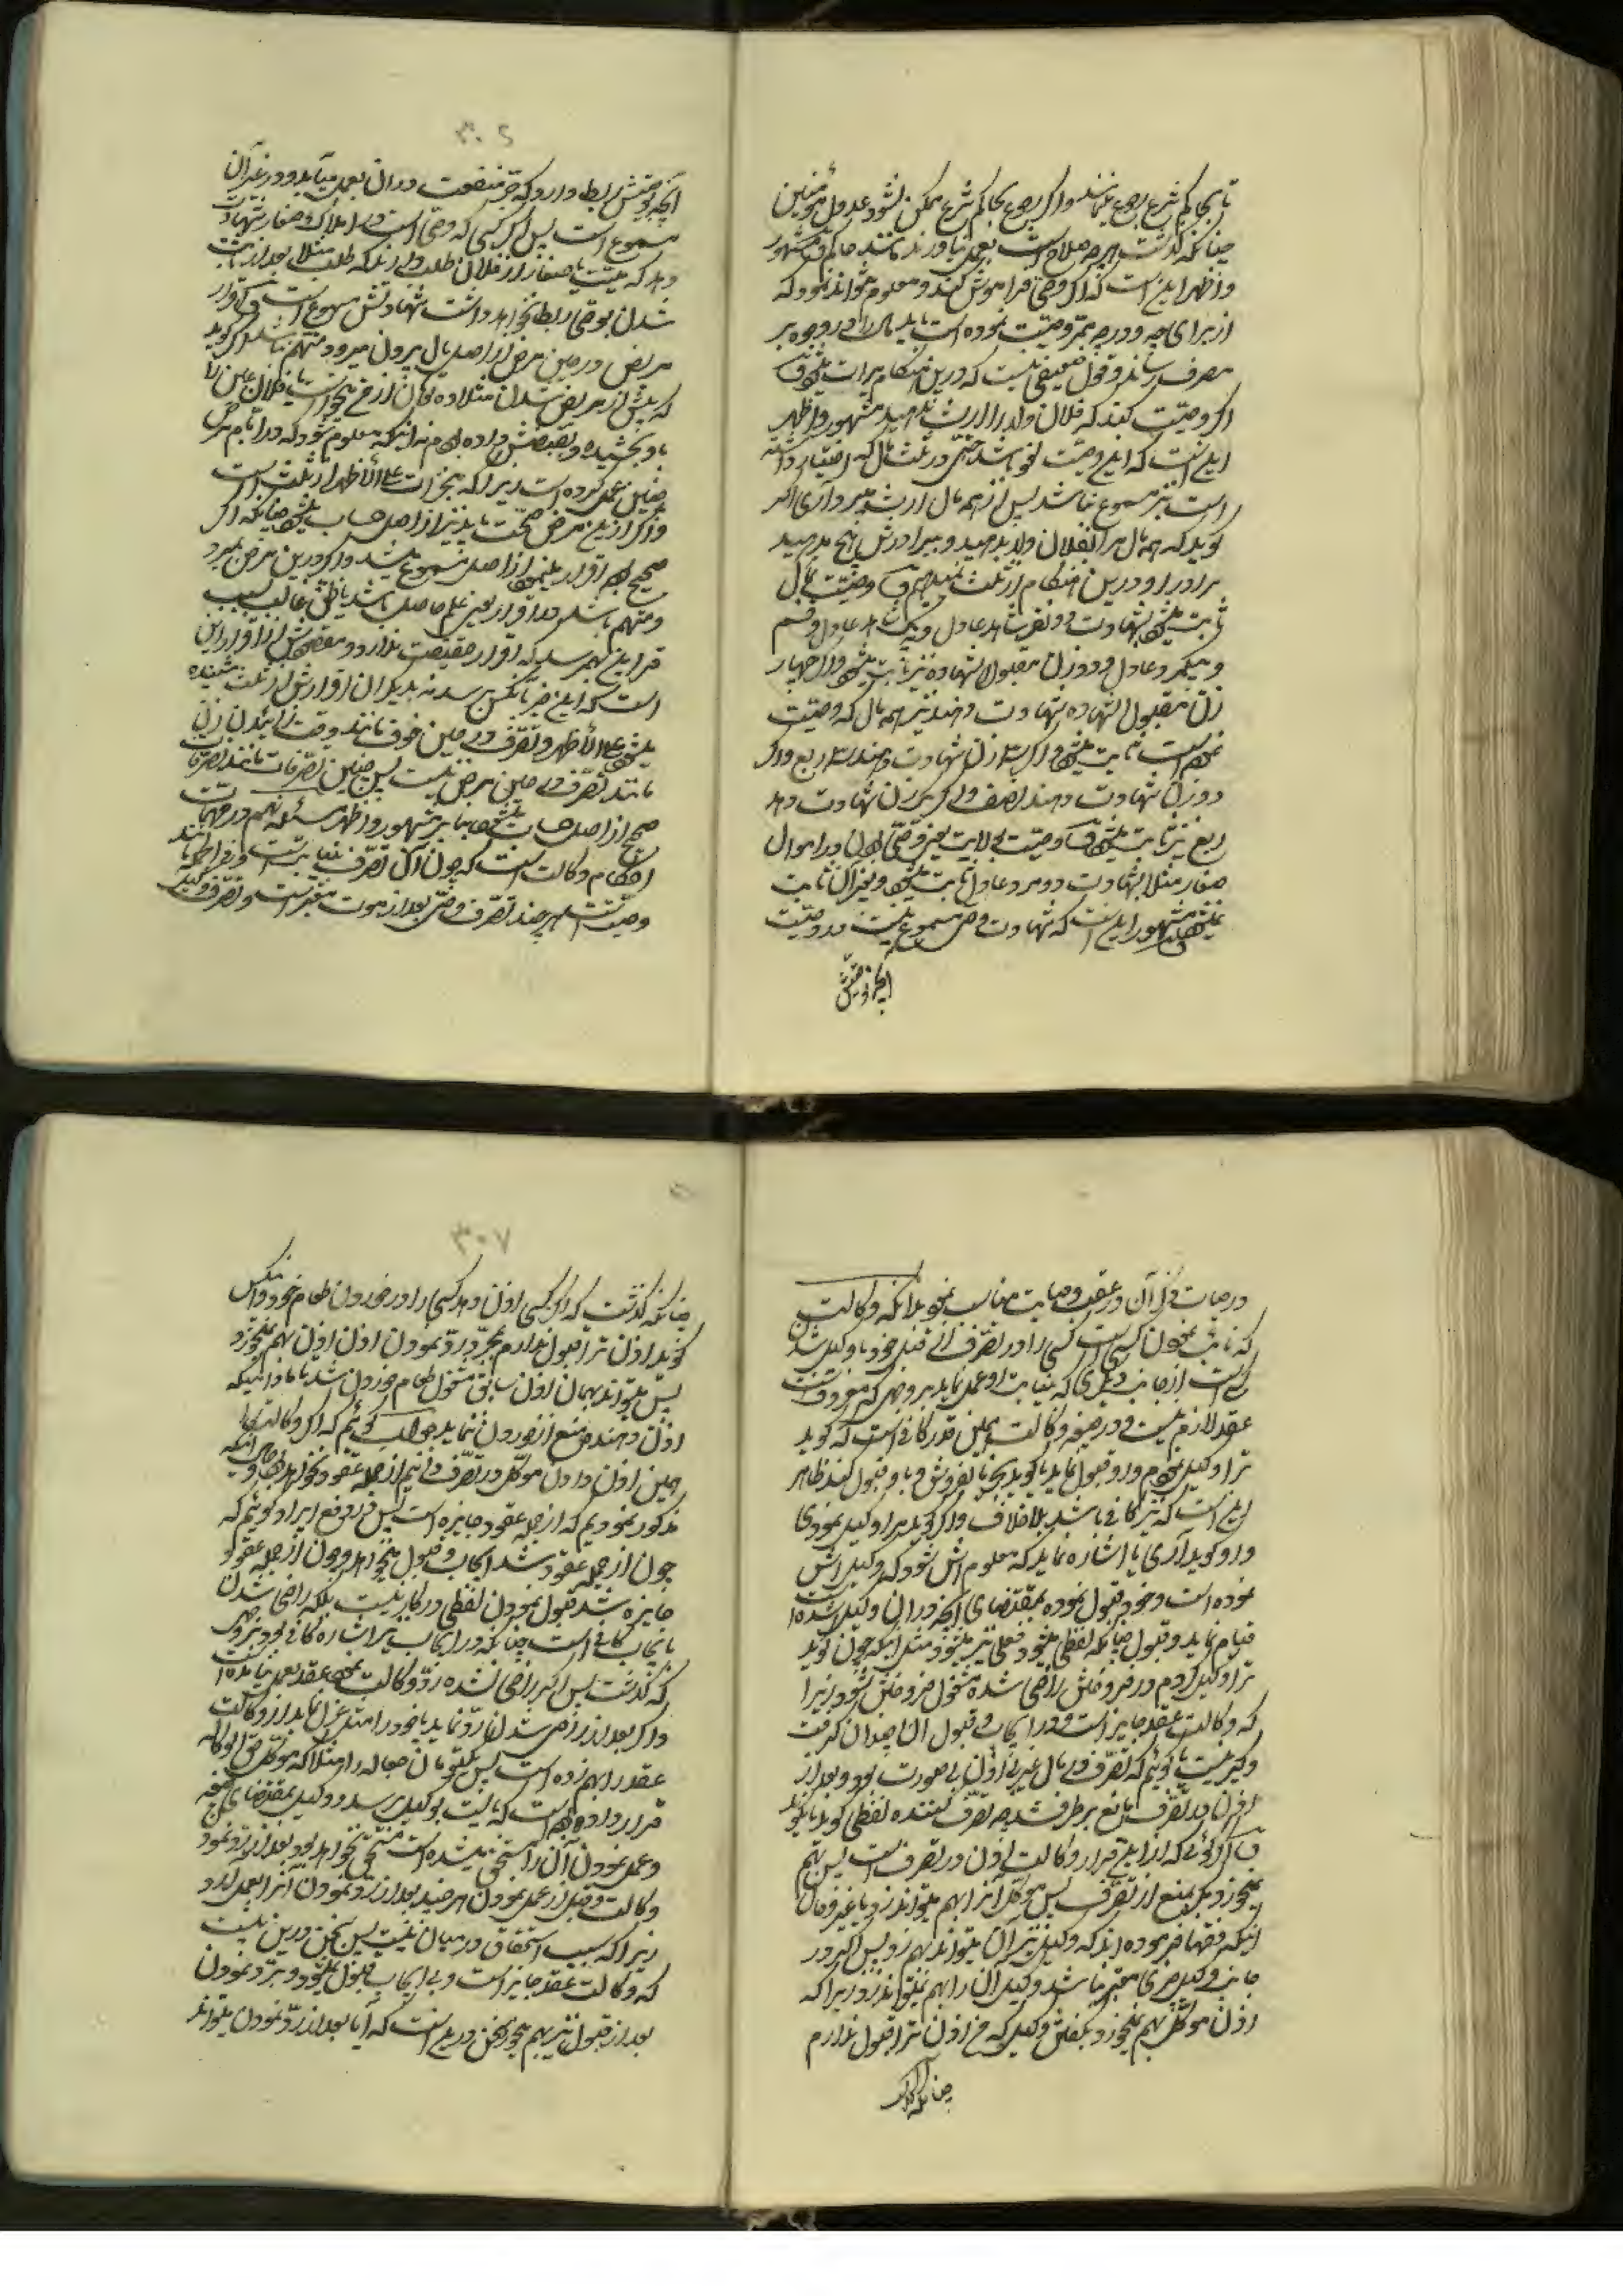 تا بحاکم شرع رجوع ننمایند و اگر رجوع بحاکم شرع ممکن نشود عدول مؤمنین
چنانکه گذشت هر چه صلاح است بعمل بیاورند مانند حاکم و مشهور
و اظهر اینست که اگر وصی فراموش کند و معلوم نتواند نمود که
از برای چه و در چه مجرّی وصیّت نموده است باید مال را در وجوه برّ
مصرف رساند و قول ضعیفی نیست که درین هنگام میراث میشود
اگر وصیّت کند که فلان ولد را از ارث ندهید مشهور و اظهر
اینست که این وصیّت لغو باشد حتّی در ثلث مال که اختیار داشته
است نیز مسموع نباشد پس از همه مال ارث میبرد آری اگر
گوید که همه مال مرا بفلان ولد بدهید و ببرادرش هیچ ندهید
برادر او درین هنگام از ثلث وصیّت بمال
ثابت میشود بشهادت دو نفر شاهد عادل و یک شاهد عادل و قسم
و یکمرد عادل و دو زن مقبول الشهاده نیز ثابت میشود و اگر چهار
زن مقبول الشهاده شهادت دهند نیز همه مال که وصیّت
شده است ثابت میشود و اگر سه زن شهادت دهند سه ربع و اگر
دو زن شهادت دهند نصف و اگر یک زن شهادت دهد
ربع نیز ثابت میشود و وصیّت بولایت یعنی وصّی بودن در اموال
صغار مثلا بشهادت دو مرد عادل ثابت میشود و بغیر آن ثابت
نمیشود مشهور اینست که شهادت وصی مسموع نیست در وصیّت
آنچه بوصیّتش
۳۰۶
آنچه بوصیّتش ربط دارد که جرّ منفعت در آن بعمل میآید و در غیر آن
مسموع است پس اگر کسی که وصّی است در املاک صغار شهادت
دهد که میّت یا صغار از فلان طلب دارند که طلب مثلا بعد از ثابت
شدن بوصّی ربط نخواهد داشت شهادتش مسموع است و اقرار
مریض در حین مرض از اصل مال بیرون میرود متّهم نباشد اگر گوید
که پیش از مریض شدن مثلا ده تومان از من میخواست یا فلان عین را
باو بخشیده و بقبضش داده بودم نه اینکه معلوم شود که در ایّام مرض
چنین عمل کرده است زیرا که منجّزات علی الاظهر از ثلث است
و اگر ازین مرض صحّت یابد نیز از اصل حساب میشود چنانکه اگر
صحیح بود اقرار مینمود از اصل مسموع میشد و اگر درین مرض بمیرد
و متّهم باشد در اقرار یعنی علم حاصل باشد یا ظنّ غالب بسبب
قراین بهمرسد که اقرار حقیقت ندارد و مقصودش از اقرار این
است که این چیز بآنکس برسد نه بدیگران اقرارش از ثلث شنیده
میشود علی الاظهر و تصّرف در حین خوف مانند وقت زائیدن زن
مانند تصّرف در حین مرض نیست پس چنین تصّرفات مانند تصّرفات
صحیح از اصل حساب میشود بنا بر مشهور و اظهر مسئله نهم در مهمّات
احکام وکالت است که چون آن تصّرف بنیابتست و فی الجمله مانند
وصّیتست هر چند تصّرف وصّی بعد از موت معتبر است و تصّرف وکیل
در حیات ذکر آن در عقب وصایت مناسب نمود بدانکه وکالت
که نایب نمودن کسی است کسی را در تصّرف از قبل خود یا وکیل شدن
کسی است از جانب دیگری که بنیابت او عمل نماید بر وجهی که معروفست
عقد لازم نیست و در صیغه وکالت همین قدر کافی است که گوید
ترا وکیل نمودم و او قبول نماید یا گوید بخر یا بفروش و او قبول کند ظاهر
اینست که نیز کافی باشد بلا خلاف و اگر گوید مرا وکیل نمودی
و او گوید آری یا اشاره نماید که معلومش شود که وکیلش
نموده است و خود قبول نموده بمقتضای آنچه در آن وکیل شده است
قیام نماید و قبول چنانکه لفظی میشود فعلی نیز میشود مثل اینکه چون گوید
ترا وکیل کردم در فروختن راضی شده مشغول فروختن شود زیرا
که وکالت عقد جایز است و در ایجاب و قبول آن چندان گرفت
و گیر نیست یا گوئیم که تصّرف در مال غیر بی اذن بی صورت بود و بعد از
اذن در تصّرف مانع برطرف شد چه تصّرف کننده لفظی گوید یا نگوید
اگر گوئی که ازین قرار وکالت اذن در تصرف است پس بهم
نمیخورد مگر بمنع از تصّرف پس موکّل آنرا بهم میتواند زد یا غیر و حال
اینکه فقها فرموده اند که وکیل نیز آن میتواند بهم زد پس اگر در
جانب وکیل چیزی معتبر نباشد وکیل آن را بهم نمیتواند زد زیرا که
اذن موکّل بهم نمیخورد بگفتن وکیل که من اذن ترا قبول ندارم
چنانکه گذشت
۳۰۷
چنانکه گذشت که اگر کسی اذن دهد کسی را در خوردن طعام خود و آنکس
گوید اذن ترا قبول ندارم بمجرّد رد نمودن اذن اذن بهم نمیخورد
پس میتواند بهمان اذن سابق مشغول طعام خوردن شد تا مادامیکه
اذن دهنده منع از خوردن ننماید جواب گوئیم که اگر وکالت را
همین اذن دادن موکّل در تصّرف دانیم از جمله عقود نخواهد بود و حال اینکه
مذکور نمودیم که از جمله عقود جایزه است پس در رفع ایراد گوئیم که
چون از جمله عقود شد ایجاب و قبول میخواهد و چون از جمله عقود
جایزه شد قبول نمودن لفظی در کار نیست بلکه راضی شدن
بایجاب کافی است چنانکه در ایجاب نیز اشاره کافی بود بنوعی
که گذشت پس اگر راضی نشده ردّ وکالت نمود عقد بعمل نیامده است
و اگر بعد از راضی شدن آنرا رد نماید یا خود را مثلا عزل نماید از وکالت
عقد را بهم زده است پس نمیتوان جعاله را مثلا که موکّل حقّ الوکاله
قرار داده بود است که بایست بوکیل برسد و وکیل بمقتضای صیغه
و عمل نمودن آن را مستحّق میشده است مستحّق نخواهد بود بعد از رد نمودن
وکالت و قبل از عمل نمودن هر چند بعد از رد نمودن آنرا بعمل آورد
زیرا که سبب استحقاق در میان نیست پس سخن درین نیست
که وکالت عقد جایز است و بی ایجاب و قبول نمیشود و برد نمودن
بعد از قبول نیز بهم میخورد سخن درین است که آیا بعد از رد نمودن میتواند